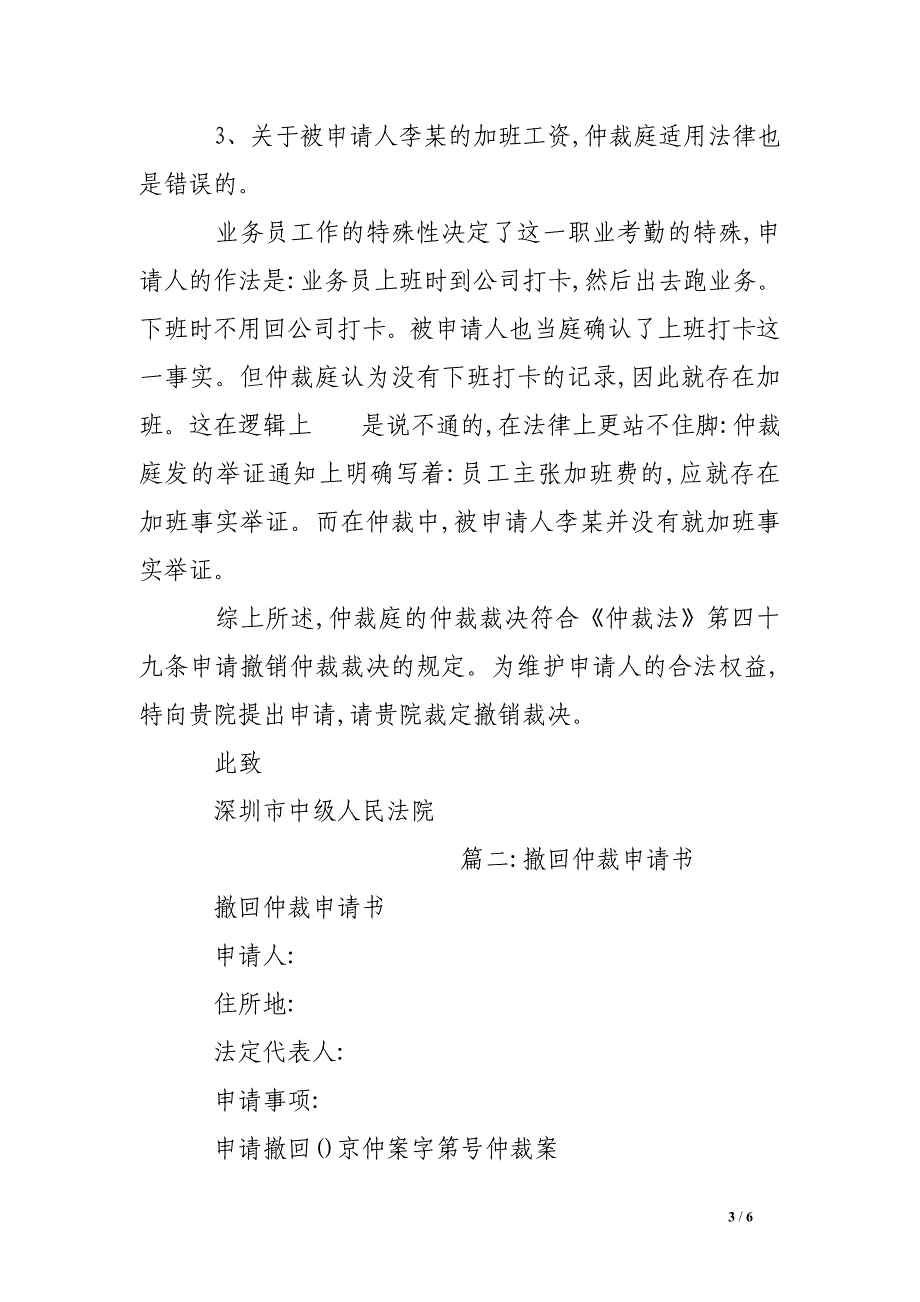 3、关于被申请人李某的加班工资,仲裁庭适用法律也
是错误的。
业务员工作的特殊性决定了这一职业考勤的特殊,申
请人的作法是:业务员上班时到公司打卡,然后出去跑业务。
下班时不用回公司打卡。被申请人也当庭确认了上班打卡这
一事实。但仲裁庭认为没有下班打卡的记录,因此就存在加
班。这在逻辑上 是说不通的,在法律上更站不住脚:仲裁
庭发的举证通知上明确写着:员工主张加班费的,应就存在
加班事实举证。而在仲裁中,被申请人李某并没有就加班事
实举证。
综上所述,仲裁庭的仲裁裁决符合《仲裁法》第四十
九条申请撤销仲裁裁决的规定。为维护申请人的合法权益,
特向贵院提出申请,请贵院裁定撤销裁决。
此致
深圳市中级人民法院
篇二:撤回仲裁申请书
撤回仲裁申请书
申请人:
住所地:
法定代表人:
申请事项:
申请撤回()京仲案字第号仲裁案
3 / 6